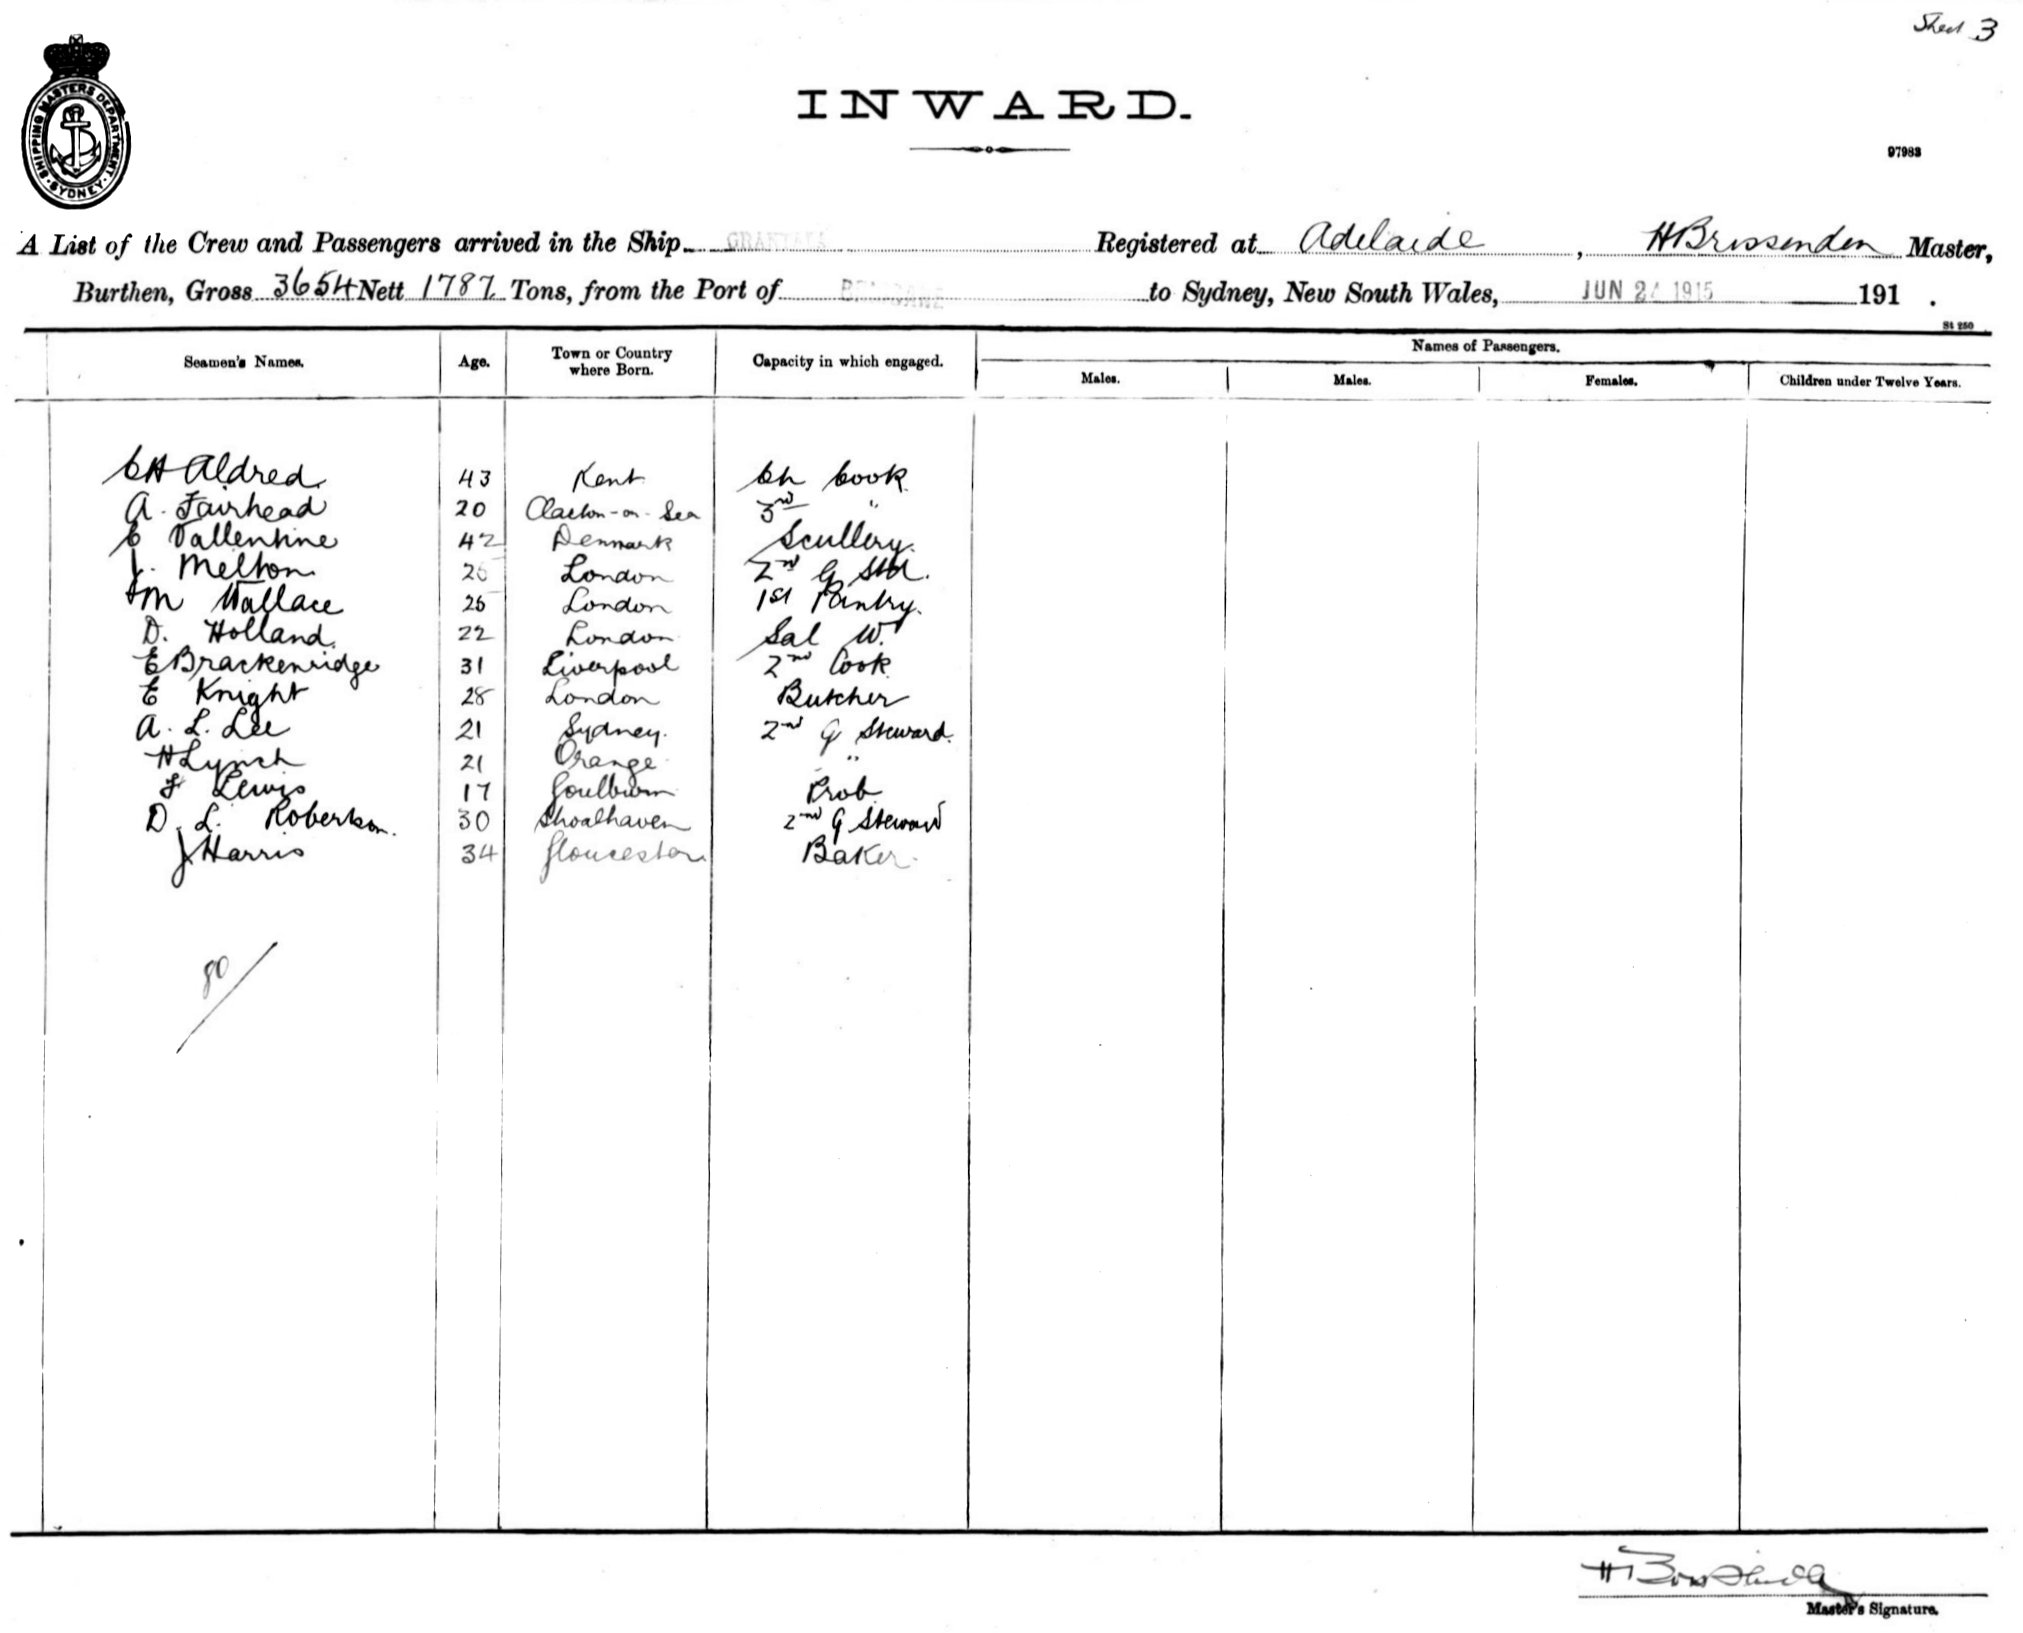 Sheet 3
SHIPPING MASTERS DEPARTMENT. SYDNEY.
INWARD.
97983
A List of the Crew and Passengers arrived in the Ship GRANTALA Registered at Adelaide, H Brissenden Master,
Burthen, Gross 3654 Nett 1787 Tons, from the Port of BRISBANE to Sydney, New South Wales, JUN 24 1915 191 .
St 250
Seamen's Names. Age. Town or Country where Born. Capacity in which engaged. Names of Passengers.
Males. Males. Females. Children under Twelve Years.
CH Aldred 43 Kent Ch Cook
A. Fairhead 20 Clacton-on-Sea 3rd "
C Vallentine 42 Denmark Scullery.
J. Melton 26 London 2nd G Std.
M Wallace 25 London 1st Pantry.
D. Holland. 22 London Sal W.
E Brackenridge 31 Liverpool 2nd Cook
E Knight 28 London Butcher
A. L. Lee 21 Sydney. 2nd G Steward.
H Lynch 21 Orange "
F Lewis 17 Goulburn Prob
D. L. Robertson. 30 Shoalhaven 2nd G Steward
J Harris 34 Gloucester Baker.
80
Master's Signature.